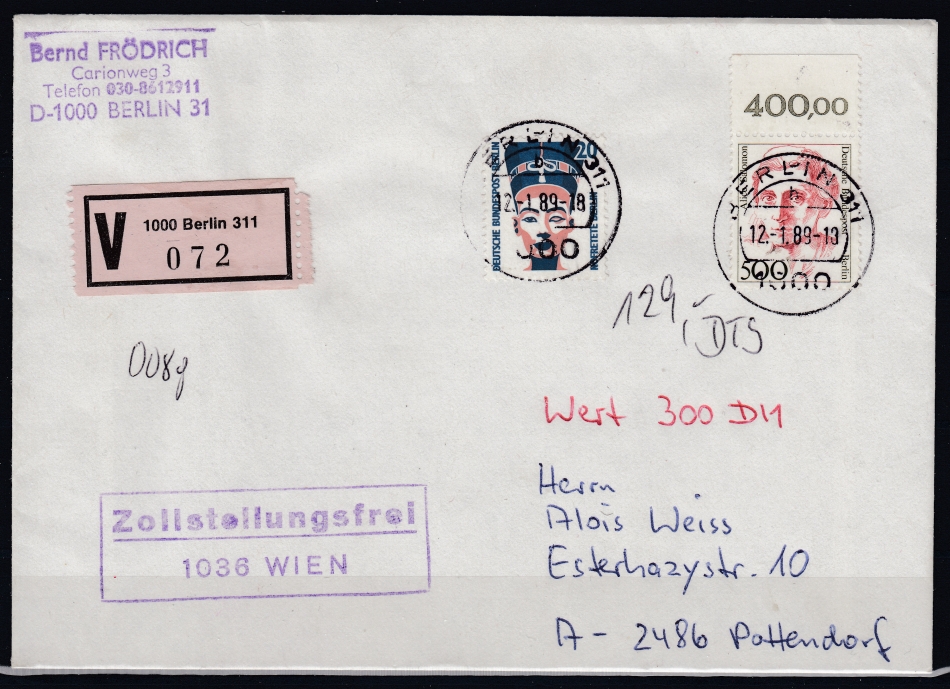 Bernd FRÖDRICH
Carionweg 3
Telefon 030-8612911
D-1000 BERLIN 31
400,00
BERLIN 311
b
12.-1.89-18
1000
20
DEUTSCHE BUNDESPOST BERLIN
NOFRETETE BERLIN
BERLIN 311
b
12.-1.89-18
1000
Deutsche Bundespost Berlin
500
V
1000 Berlin 311
072
129,- DTS
008g
Wert 300 DM
Herrn
Alois Weiss
Esterhazystr. 10
A - 2486 Pottendorf
Zollstellungsfrei
1036 WIEN